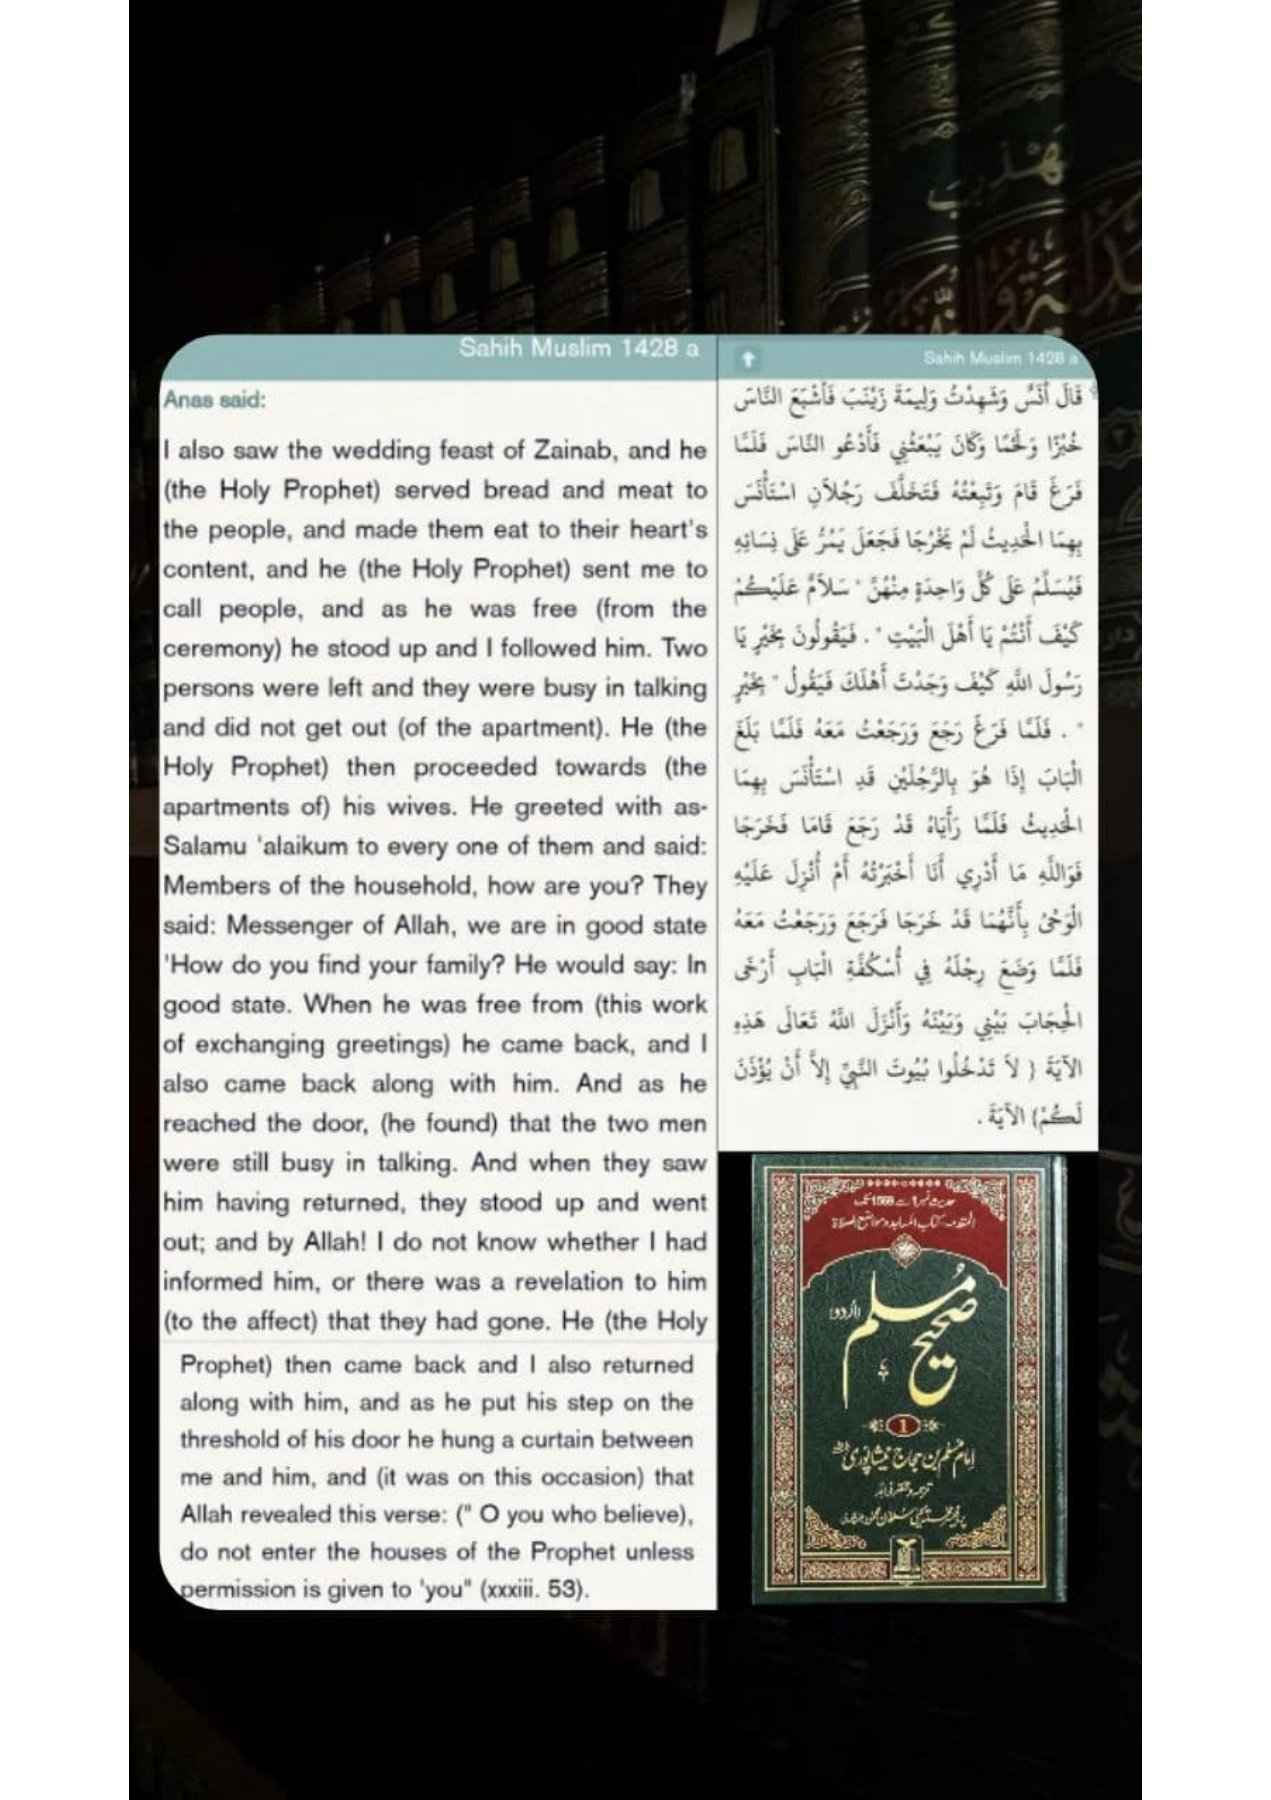 Sahih Muslim 1428 a
Anas said:
I also saw the wedding feast of Zainab, and he
(the Holy Prophet) served bread and meat to
the people, and made them eat to their heart's
content, and he (the Holy Prophet) sent me to
call people, and as he was free (from the
ceremony) he stood up and I followed him. Two
persons were left and they were busy in talking
and did not get out (of the apartment). He (the
Holy Prophet) then proceeded towards (the
apartments of) his wives. He greeted with as-
Salamu 'alaikum to every one of them and said:
Members of the household, how are you? They
said: Messenger of Allah, we are in good state
'How do you find your family? He would say: In
good state. When he was free from (this work
of exchanging greetings) he came back, and I
also came back along with him. And as he
reached the door, (he found) that the two men
were still busy in talking. And when they saw
him having returned, they stood up and went
out; and by Allah! I do not know whether I had
informed him, or there was a revelation to him
(to the affect) that they had gone. He (the Holy
Prophet) then came back and I also returned
along with him, and as he put his step on the
threshold of his door he hung a curtain between
me and him, and (it was on this occasion) that
Allah revealed this verse: (" O you who believe),
do not enter the houses of the Prophet unless
permission is given to 'you" (xxxiii. 53).
Sahih Muslim 1428 a
قَالَ أَنَسٌ وَشَهِدْتُ وَلِيمَةَ زَيْنَبَ فَأَشْبَعَ النَّاسَ
خُبْزًا وَلَحْمًا وَكَانَ يَبْعَثُنِي فَأَدْعُو النَّاسَ فَلَمَّا
فَرَغَ قَامَ وَتَبِعْتُهُ فَتَخَلَّفَ رَجُلاَنِ اسْتَأْنَسَ
بِهِمَا الْحَدِيثُ لَمْ يَخْرُجَا فَجَعَلَ يَمُرُّ عَلَى نِسَائِهِ
فَيُسَلِّمُ عَلَى كُلِّ وَاحِدَةٍ مِنْهُنَّ " سَلاَمٌ عَلَيْكُمْ
كَيْفَ أَنْتُمْ يَا أَهْلَ الْبَيْتِ " . فَيَقُولُونَ بِخَيْرٍ يَا
رَسُولَ اللَّهِ كَيْفَ وَجَدْتَ أَهْلَكَ فَيَقُولُ " بِخَيْرٍ
" . فَلَمَّا فَرَغَ رَجَعَ وَرَجَعْتُ مَعَهُ فَلَمَّا بَلَغَ
الْبَابَ إِذَا هُوَ بِالرَّجُلَيْنِ قَدِ اسْتَأْنَسَ بِهِمَا
الْحَدِيثُ فَلَمَّا رَأَيَاهُ قَدْ رَجَعَ قَامَا فَخَرَجَا
فَوَاللَّهِ مَا أَدْرِي أَنَا أَخْبَرْتُهُ أَمْ أُنْزِلَ عَلَيْهِ
الْوَحْىُ بِأَنَّهُمَا قَدْ خَرَجَا فَرَجَعَ وَرَجَعْتُ مَعَهُ
فَلَمَّا وَضَعَ رِجْلَهُ فِي أُسْكُفَّةِ الْبَابِ أَرْخَى
الْحِجَابَ بَيْنِي وَبَيْنَهُ وَأَنْزَلَ اللَّهُ تَعَالَى هَذِهِ
الآيَةَ { لاَ تَدْخُلُوا بُيُوتَ النَّبِيِّ إِلاَّ أَنْ يُؤْذَنَ
لَكُمْ} الآيَةَ .
حدیث نمبر 1 سے 1569 تک
صحیح مسلم
(اردو)
1
امام مسلم بن حجاج نیشاپوری